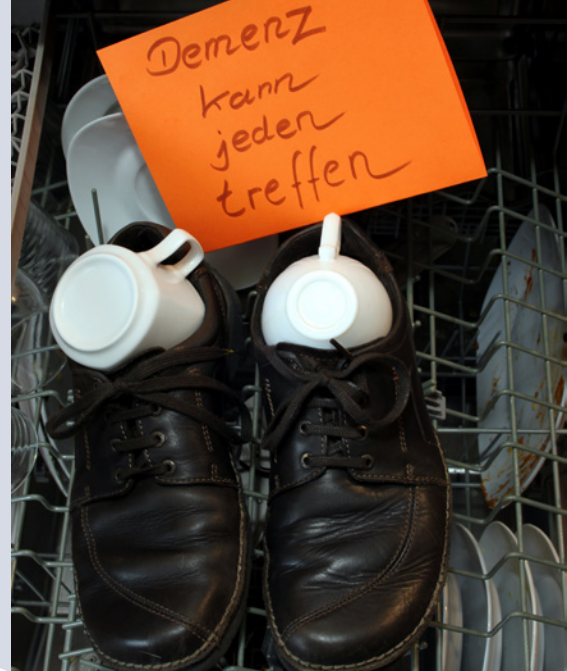 Demenz
kann
jeden
treffen